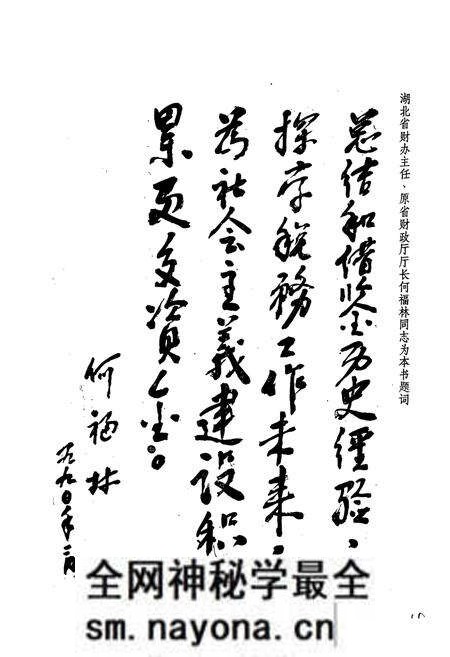 湖北省财办主任、原省财政厅厅长何福林同志为本书题词
总结和借鉴历史经验，
探索税务工作未来，
为社会主義建设积
累更多资金。
何福林
一九九〇年二月
全网神秘学最全
sm.nayona.cn